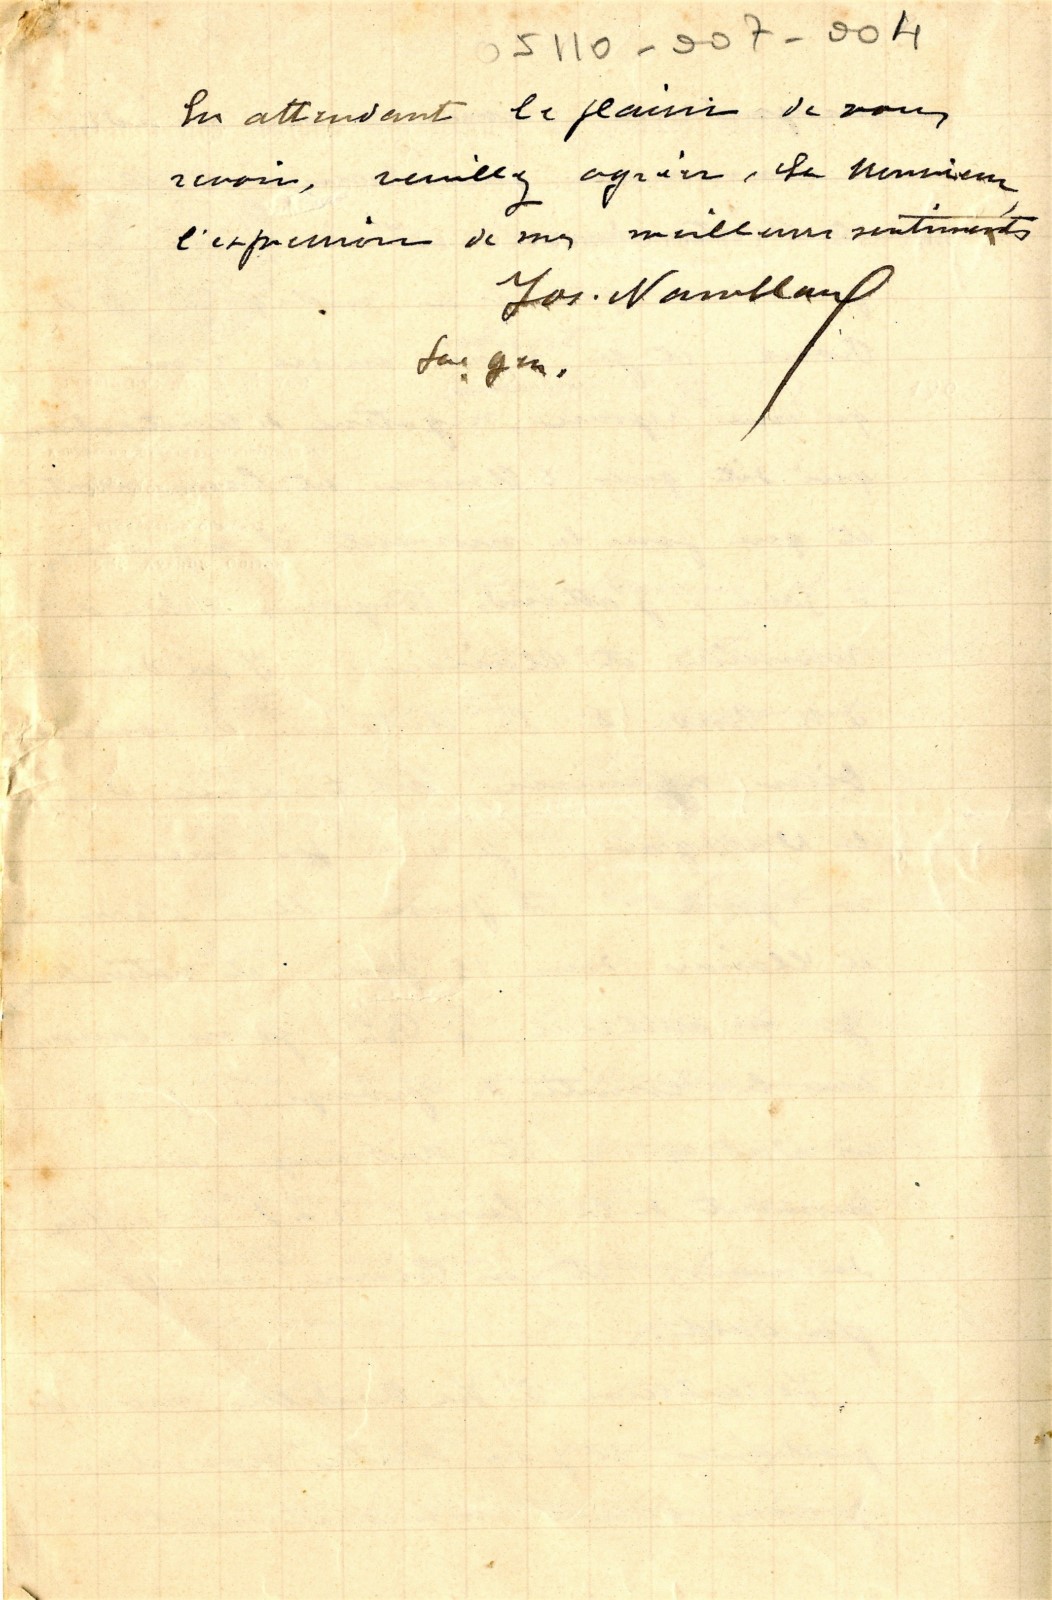 En attendant le plaisir de vous
revoir, veuillez agréer, Ch Monsieur,
l'expression de mes meilleurs sentiments
Jos.
Sec. gen.